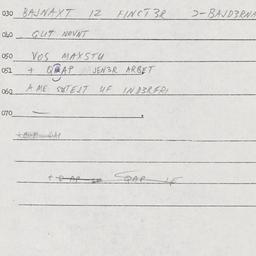 030 BAJNAXT IZ FINCT3R 2-BAJD3RNA
040 GUT NOVNT
050 VOS MAXSTU
051 + QAP JEN3R ARBET
060 A ME SHTELT UF IND3RFRI
070 —
+ QAP
QAP